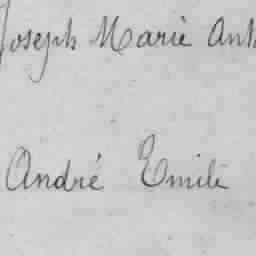 Joseph Marie Ant
André Emile